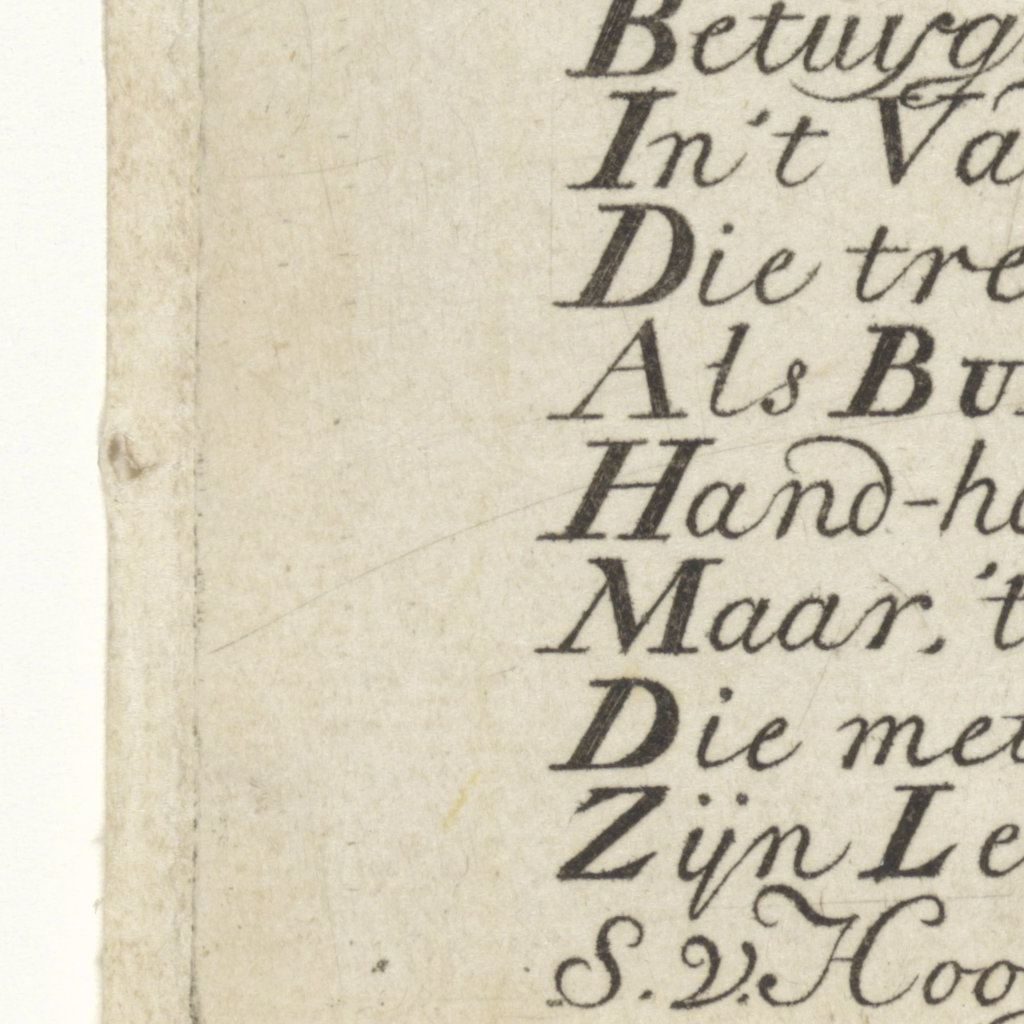 Betuyg
In't Va
Die tre
Als Bu
Hand-ha
Maar, 't
Die met
Zijn Le
S. v. Hoo